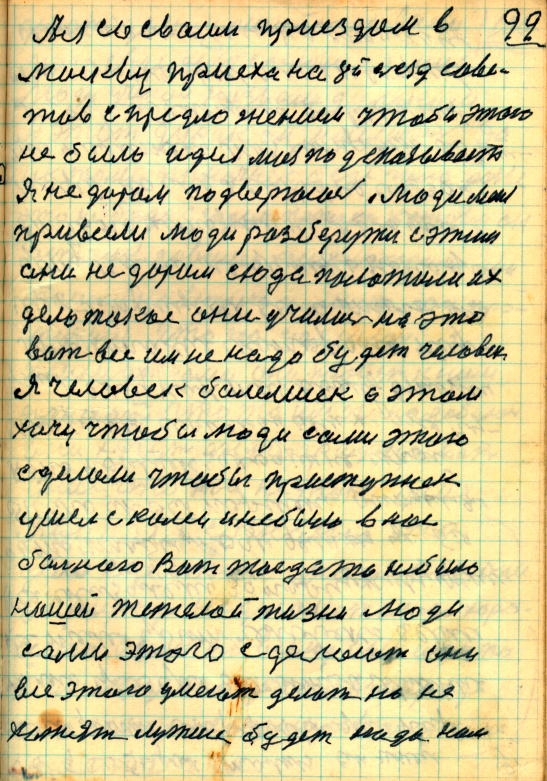 99
А я со своим приездом в
Москву приехал на  съезд сове-
тов с предложением чтобы этого
не было идея моя подсказывать
Я не даром подвергаюсь люди меня
привели люди разберутся с этим
они не даром сюда положили их
дело такое они учились на это
вот все им не надо будет человек
Я человек болемиск в этом
хочу чтобы люди сами этого
сделали чтобы приступник
ушел с колеи и небыло в нас
болного Вот тогдато небыло
нашей тежелой жизни Люди
сами этого сделают они
все этого умеют делат но не
хотят Лутше будет надо нам